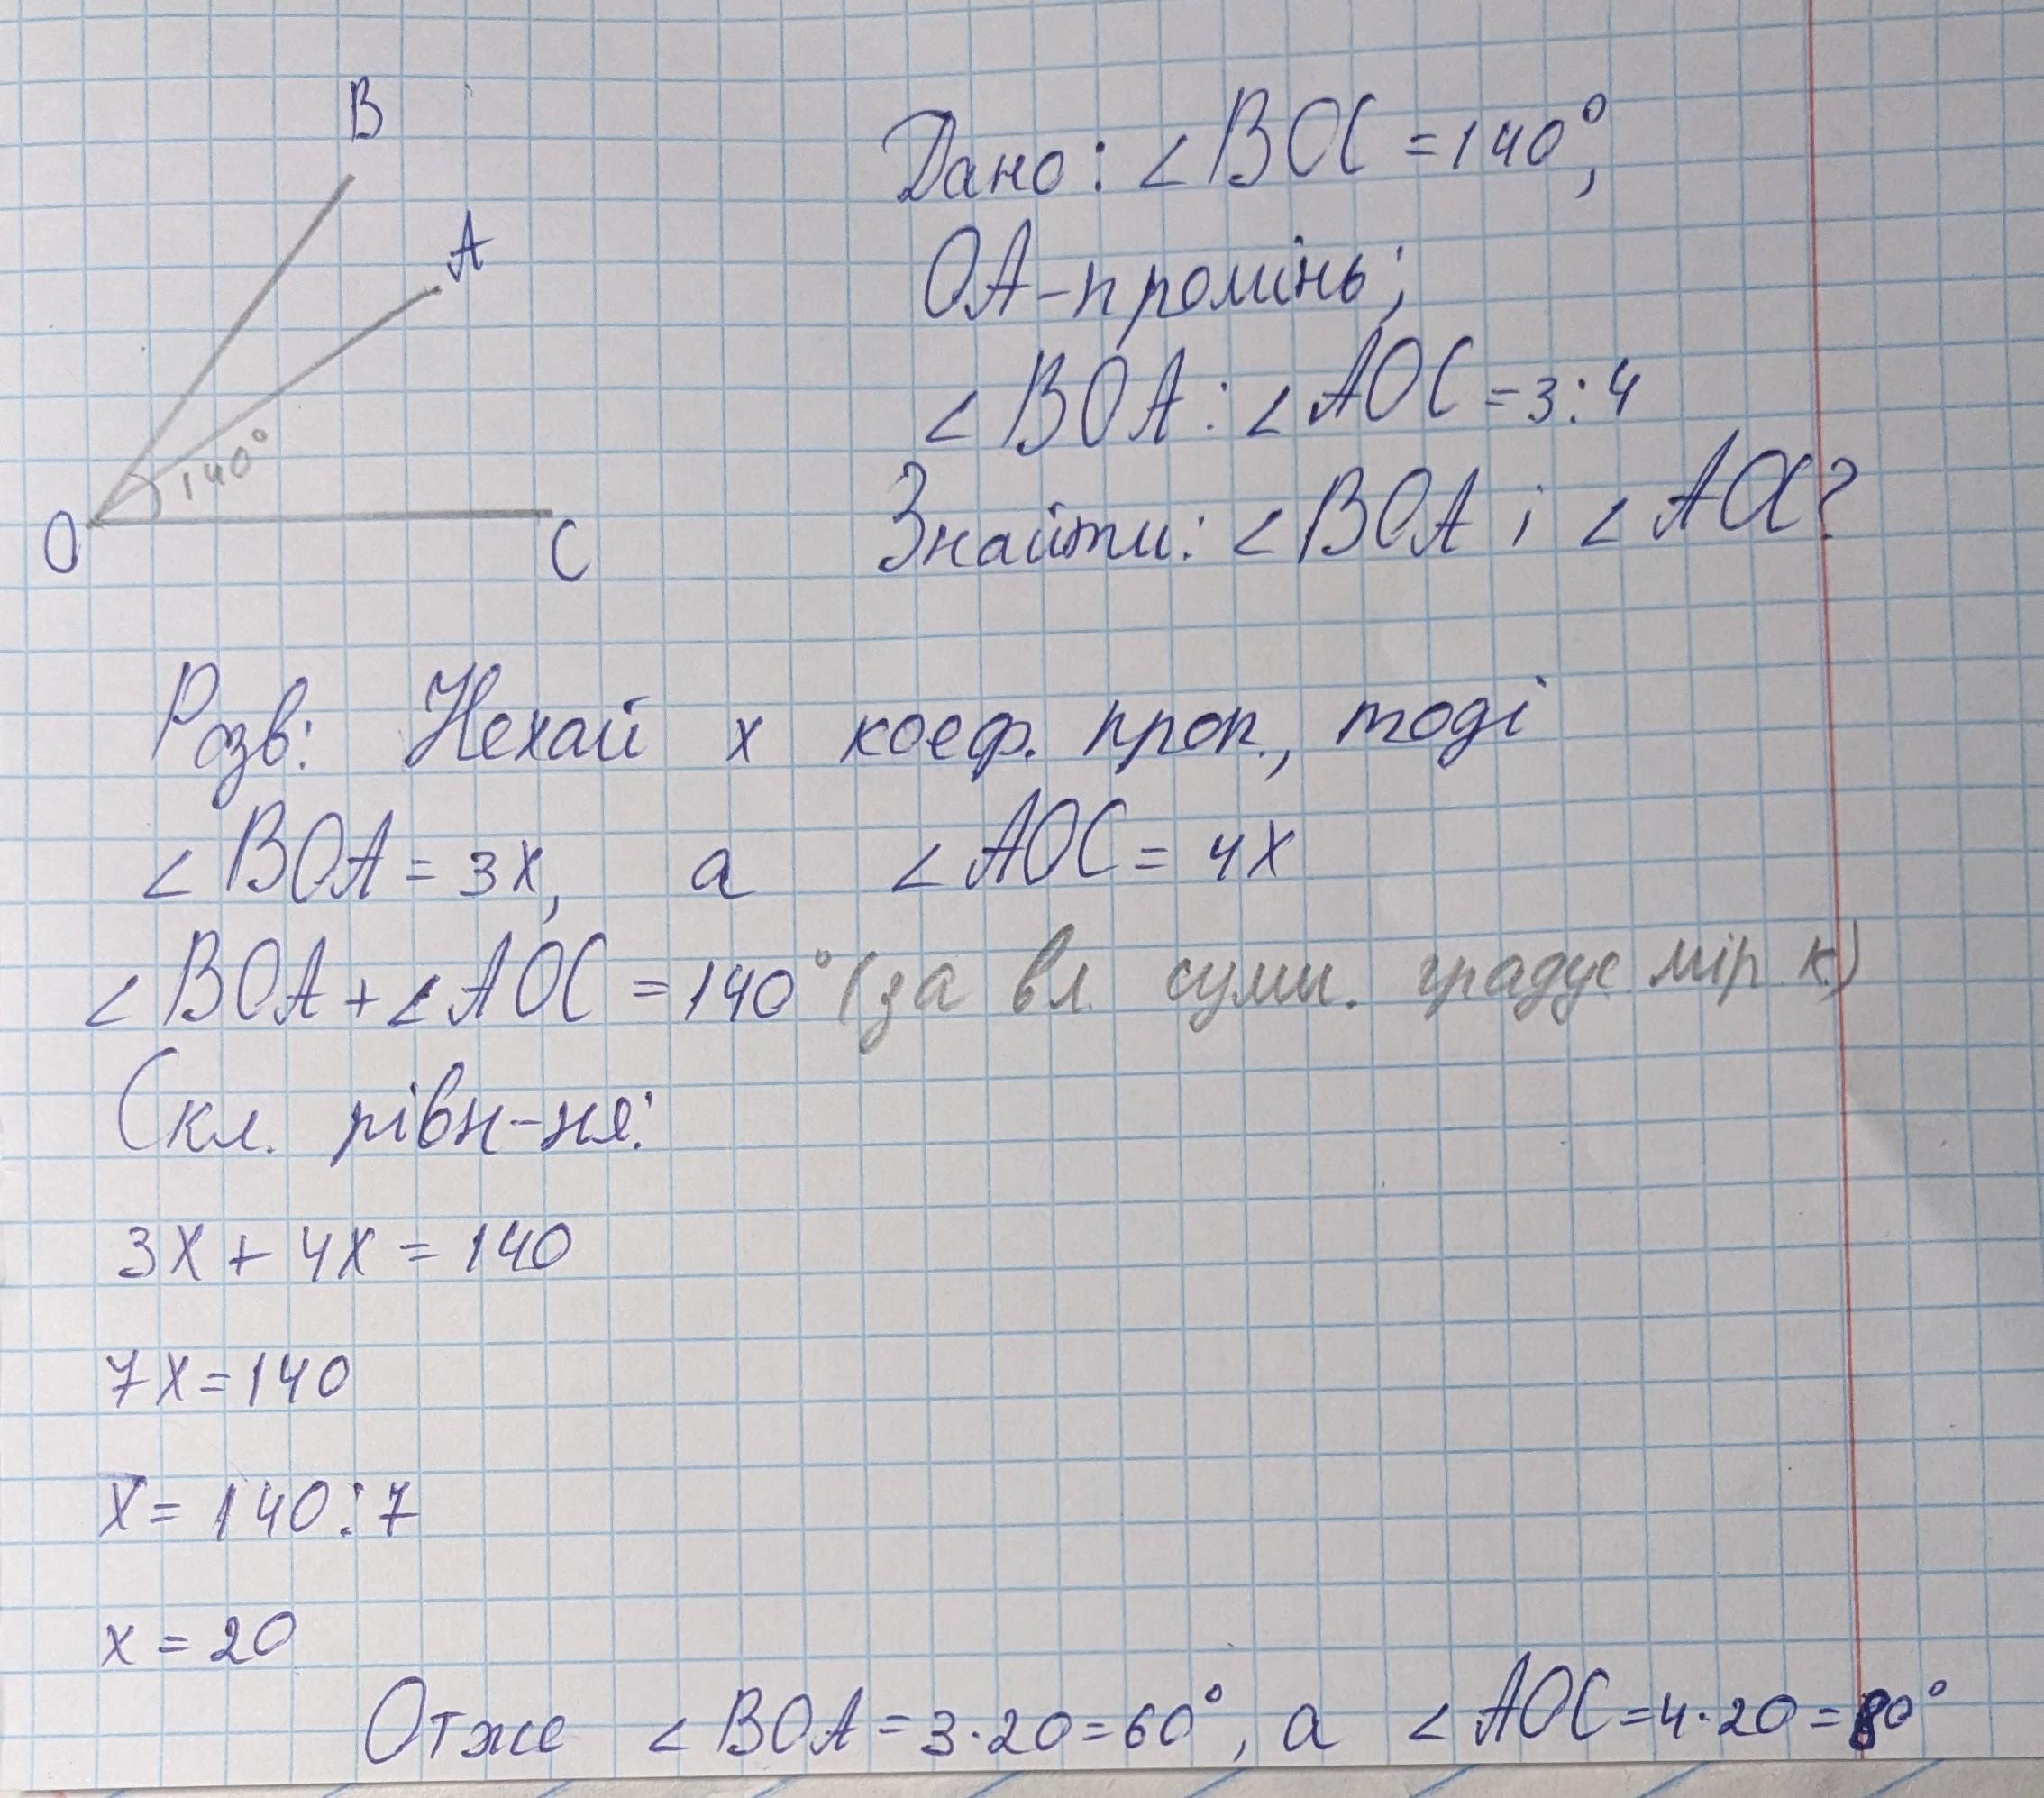 B
A
140°
O
C
Дано: ∠BOC = 140°,
OA - промінь;
∠BOA : ∠AOC = 3:4
Знайти: ∠BOA і ∠AOC?
Розв: Нехай x коеф. проп., тоді
∠BOA = 3x, а ∠AOC = 4x
∠BOA + ∠AOC = 140° (за вл. сумм. градус мір к)
Скл. рівн-ня:
3x + 4x = 140
7x = 140
x = 140:7
x = 20
Отже ∠BOA = 3·20 = 60°, а ∠AOC = 4·20 = 80°